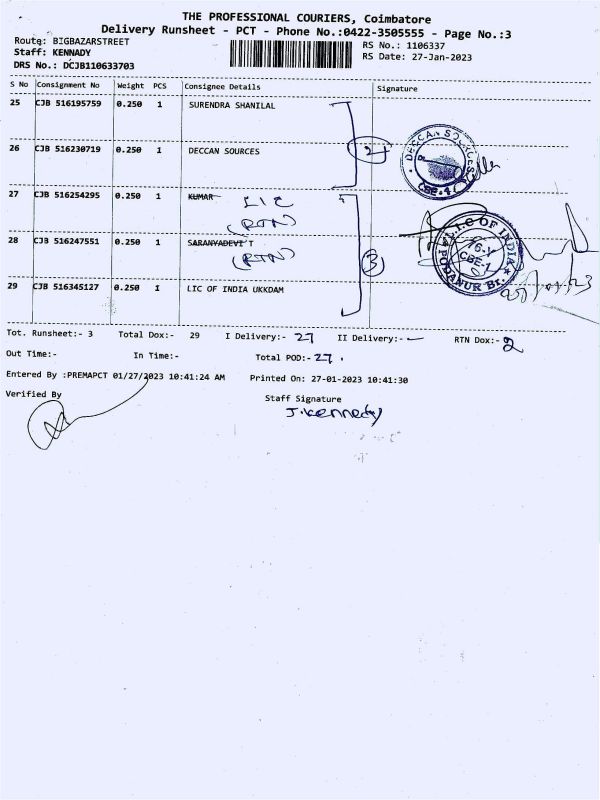 THE PROFESSIONAL COURIERS, Coimbatore
Delivery Runsheet - PCT - Phone No.:0422-3505555 - Page No.:3
Route: BIGBAZARSTREET
RS No.: 1106337
Staff: KENNADY
RS Date: 27-Jan-2023
DRS No.: DCJB110633703
S No Consignment No Weight PCS Consignee Details Signature
25 CJB 516195759 0.250 1 SURENDRA SHANILAL
26 CJB 516230719 0.250 1 DECCAN SOURCES
2
DECCAN SOURCES
27 CJB 516254295 0.250 1 KUMAR LIC
(RTN)
28 CJB 516247551 0.250 1 SARANYADEVI T
(RTN)
3
L.I.C OF INDIA
CBE-1
PODANUR Br.
29 CJB 516345127 0.250 1 LIC OF INDIA UKKDAM
Tot. Runsheet:- 3 Total Dox:- 29 I Delivery:- 27 II Delivery:- - RTN Dox:- 2
Out Time:- In Time:- Total POD:- 27.
Entered By :PREMAPCT 01/27/2023 10:41:24 AM Printed On: 27-01-2023 10:41:30
Verified By Staff Signature
J.Kennedy